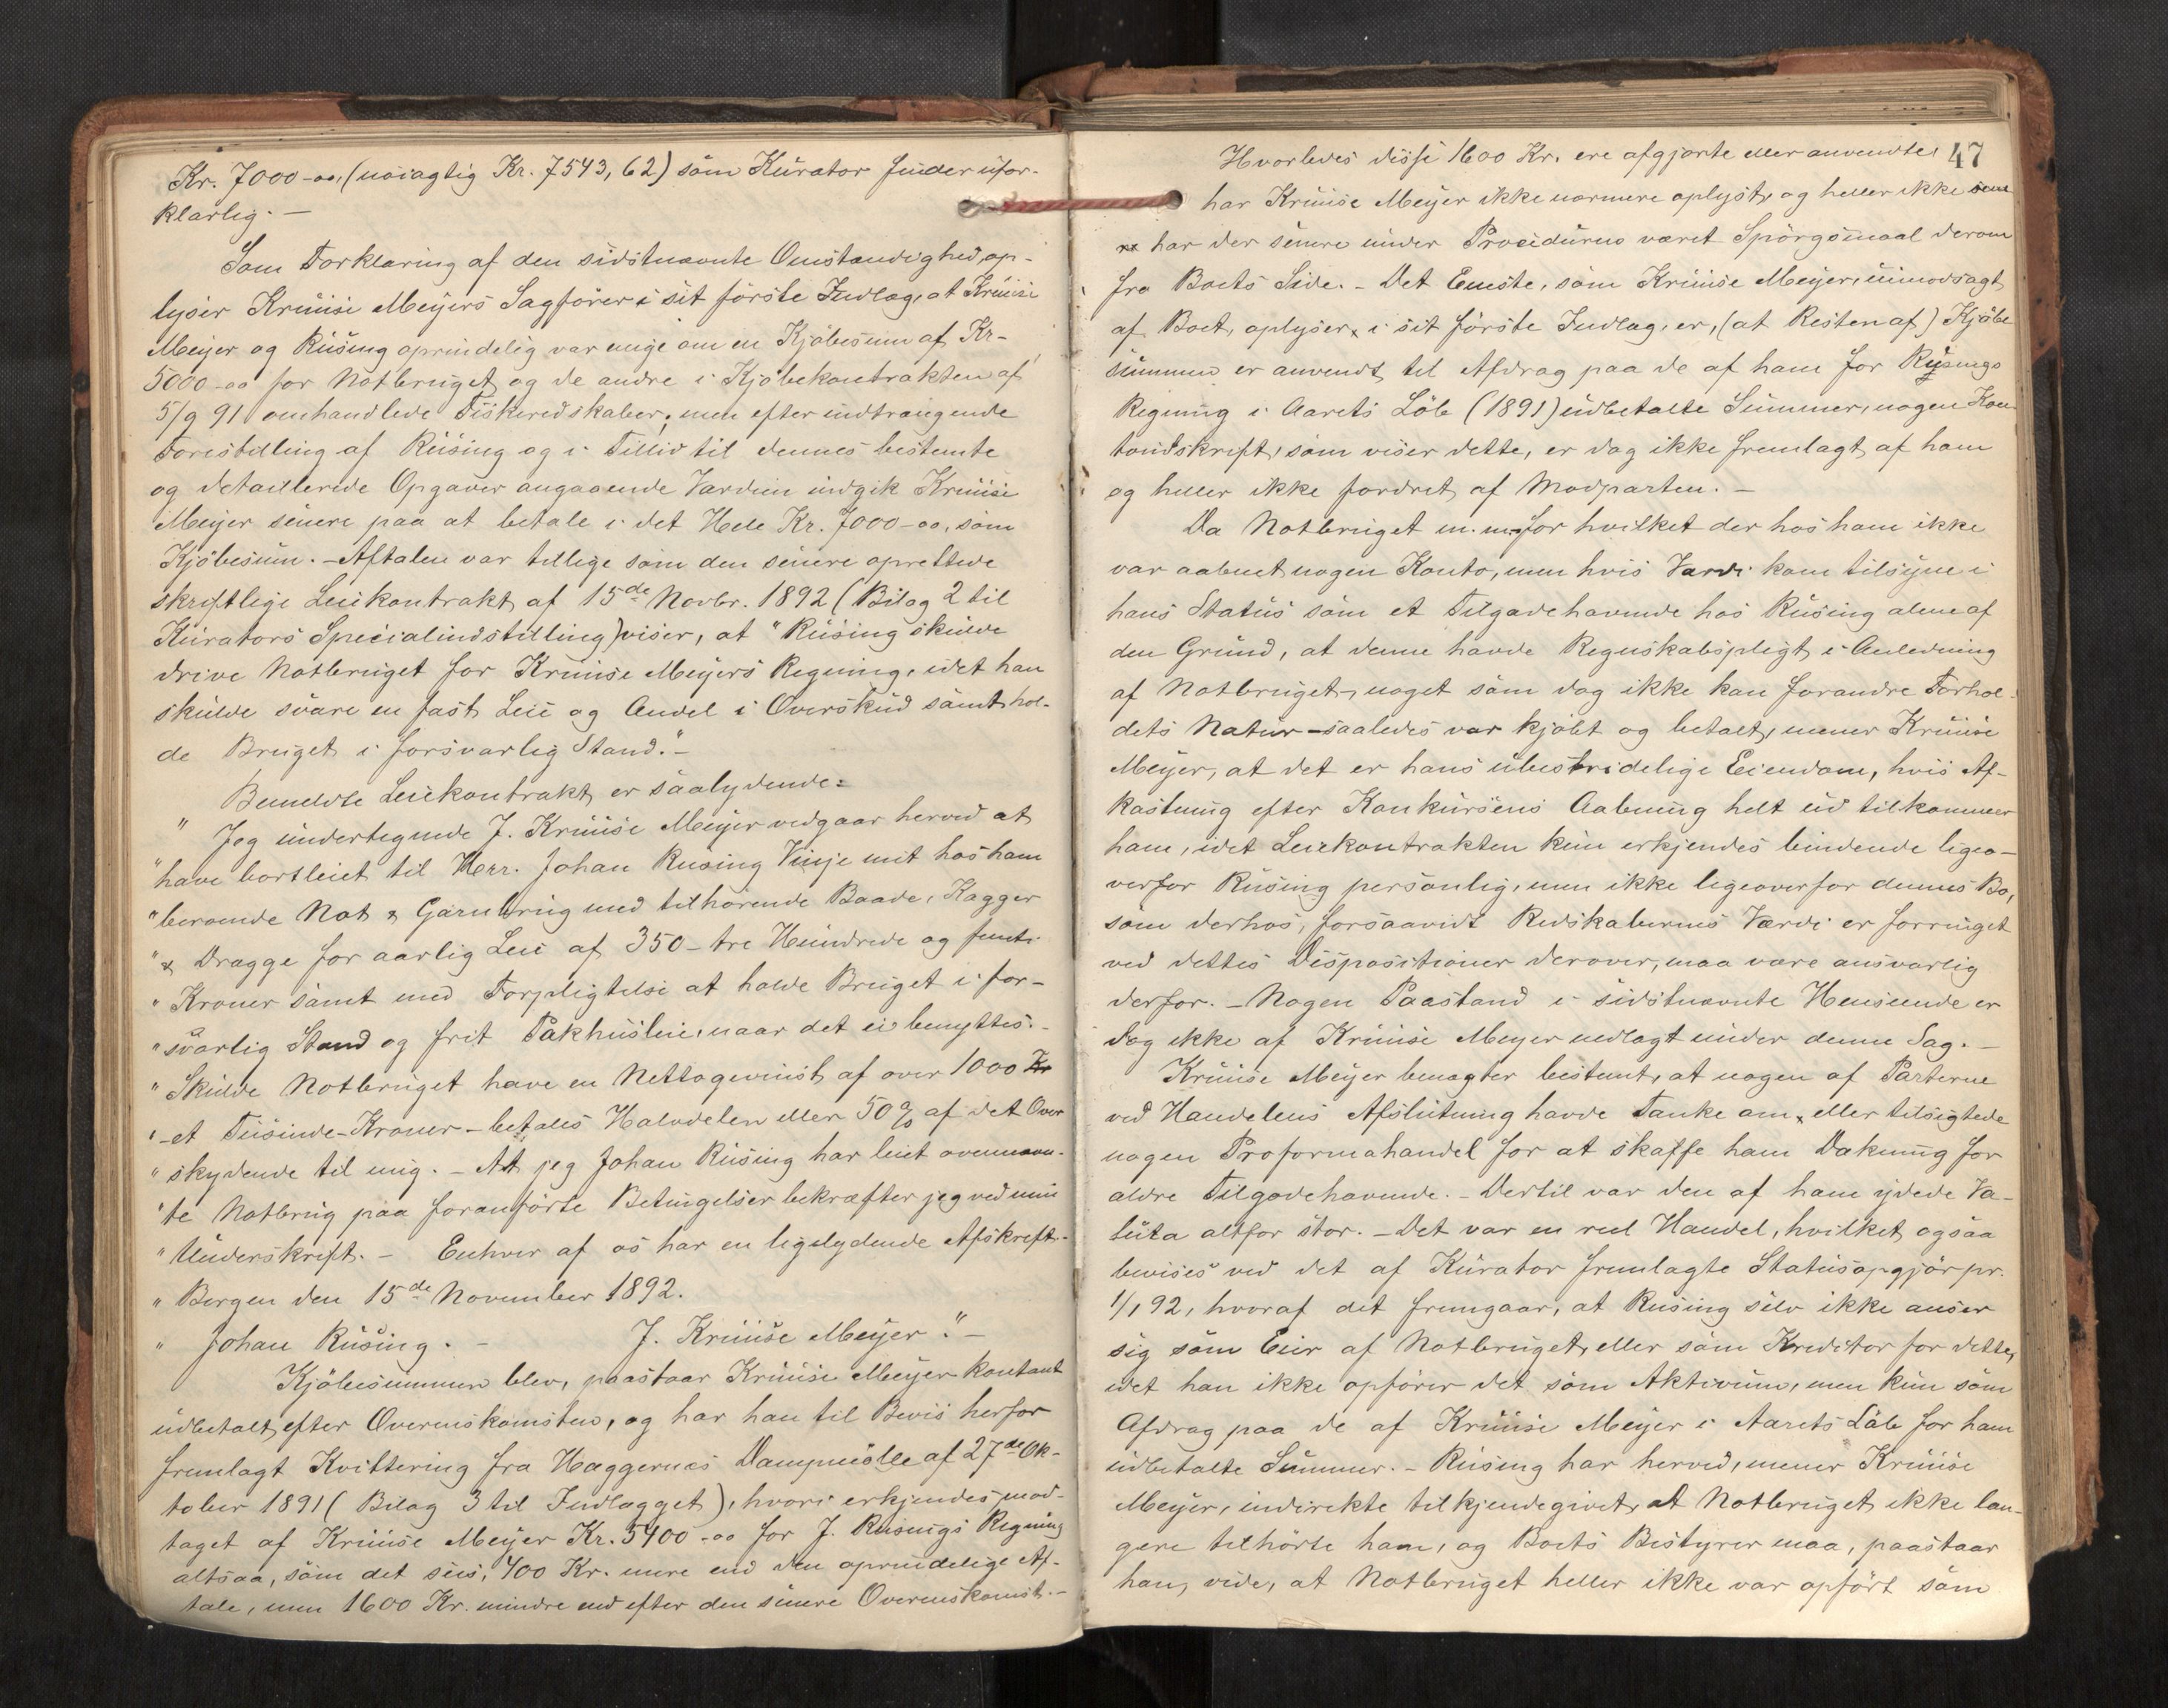 Kr. 7000-oo, (nöiagtig Kr. 7543,62) som Kurator finder ufor-
klarlig. -
Som Forklaring af den sidstnævnte Omstændighed, op-
lyser Kruuse Meyers Sagförer i sit förste Indlæg, at Kruuse
Meyer og Rusing oprindelig var enige om en Kjöbesum af Kr.
5000-oo for Notbruget og de andre i Kjöbekontrakten af
5/9 91 omhandlede Fiskeredskaber; men efter indtrængende
Forestilling af Rusing og i Tillid til dennes bestemte
og detaillerede Opgaver angaaende Værdien indgik Kruuse
Meyer senere paa at betale i det Hele Kr. 7000-oo, som
Kjöbesum. - Aftalen var tillige som den senere oprettede
skriftlige Leiekontrakt af 15de Novbr. 1892 (Bilag 2 til
Kurators Specialindstilling) viser, at "Rusing skulde
drive Notbruget for Kruuse Meyers Regning, idet han
skulde svare en fast Leie og Andel i Overskud samt hol-
de Bruget i forsvarlig Stand." -
Bemeldte Leiekontrakt er saalydende:
" Jeg undertegnede J. Kruuse Meyer vedgaar herved at
" have bortleiet til Herr. Johan Rusing Vinje mit hos ham
" beroende Not & Garnbrug med tilhörende Baade, Kagger
" & Dragge for aarlig Leie af 350 - tre Hundrede og femti
" Kroner samt med Forpligtelse at holde Bruget i for-
" svarlig Stand og frit Pakhusleie, naar det ei benyttes. -
" Skulde Notbruget have en Nettogevinst af over 1000 Kr
" - et Tusinde - Kroner - betales Halvdelen eller 50% af det Over
" skydende til mig. - At jeg Johan Rusing har leiet ovennævn-
" te Notbrug paa foranförte Betingelser bekræfter jeg ved min
" Underskrift. - Enhver af os har en ligelydende Afskrift. -
" Bergen den 15de November 1892.
" Johan Rusing. - J. Kruuse Meyer." -
Kjöbesummen blev, paastaar Kruuse Meyer kontant
udbetalt efter Overenskomsten, og har han til Bevis herfor
fremlagt Kvittering fra Haggernæs Dampmölle af 27de Ok-
tober 1891 (Bilag 3 til Indlægget), hvori erkjendes mod-
taget af Kruuse Meyer Kr. 5400-oo for J. Rusings Regning
altsaa, som det sees, 400 Kr. mere end den oprindelige Af-
tale, men 1600 Kr. mindre end efter den senere Overenskomst. -
47
Hvorledes disse 1600 Kr. ere afgjorte eller anvendte,
har Kruuse Meyer ikke nærmere oplyst, og heller ikke
har der senere under Proceduren været Spörgsmaal derom
fra Boets Side. - Det Eneste, som Kruuse Meyer, uimodsagt
af Boet, oplyser, i sit förste Indlæg, er, (at Resten af) Kjöbe
summen er anvendt til Afdrag paa de af ham for Rusings
Regning i Aarets Löb (1891) udbetalte Summer, nogen Kon-
toudskrift, som viser dette, er dog ikke fremlagt af ham
og heller ikke fordret af Modparten. -
Da Notbruget m. m. for hvilket der hos ham ikke
var aabnet nogen Konto, men hvis Værdi kom tilsyne i
hans Status som et Tilgodehavende hos Rusing alene af
den Grund, at denne havde Regnskabspligt i Anledning
af Notbruget, noget som dog ikke kan forandre Forhol-
dets Natur - saaledes var kjöbt og betalt, mener Kruuse
Meyer, at det er hans ubestridelige Eiendom, hvis Af-
kastning efter Konkursens Aabning helt ud tilkommer
ham, idet Leiekontrakten kun erkjendes bindende ligeo-
verfor Rusing personlig, men ikke ligeoverfor dennes Bo,
som derhos, forsaavidt Redskabernes Værdi er forringet
ved dettes Dispositioner derover, maa være ansvarlig
derfor. - Nogen Paastand i sidstnævnte Henseende er
dog ikke af Kruuse Meyer nedlagt under denne Sag. -
Kruuse Meyer benægter bestemt, at nogen af Parterne
ved Handelens Afslutning havde Tanke om, eller tilsigtede
nogen Proformahandel for at skaffe ham Dækning for
ældre Tilgodehavende. - Dertil var den af ham ydede Va-
luta altfor stor. - Det var en reel Handel, hvilket ogsaa
bevises ved det af Kurator fremlagte Statusopgjör pr.
1/1 92, hvoraf det fremgaar, at Rusing selv ikke anser
sig som Eier af Notbruget, eller som Kreditor for dette,
idet han ikke opförer det som Aktivum, men kun som
Afdrag paa de af Kruuse Meyer i Aarets Löb for ham
udbetalte Summer. - Rusing har herved, mener Kruuse
Meyer, indirekte tilkjendegivet, at Notbruget ikke læn-
gere tilhörte ham, og Boets Bestyrer maa, paastaar
han, vide, at Notbruget heller ikke var opfört som